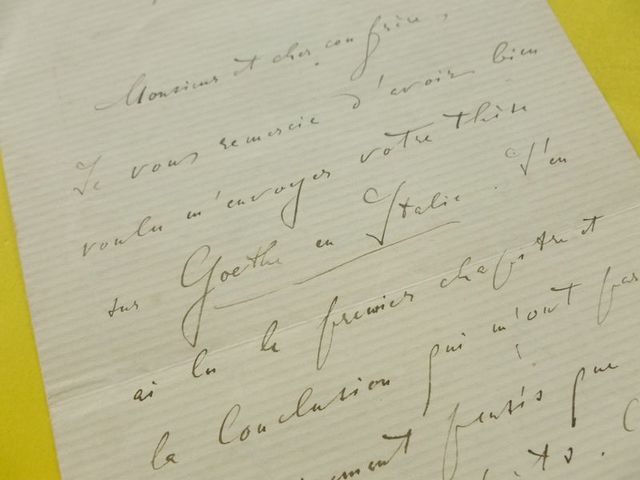 Monsieur et cher confrère,
Je vous remercie d'avoir bien
voulu m'envoyer votre thèse
sur Goethe en Italie. J'en
ai lu le premier chapitre et
la Conclusion qui m'ont par
pensés que